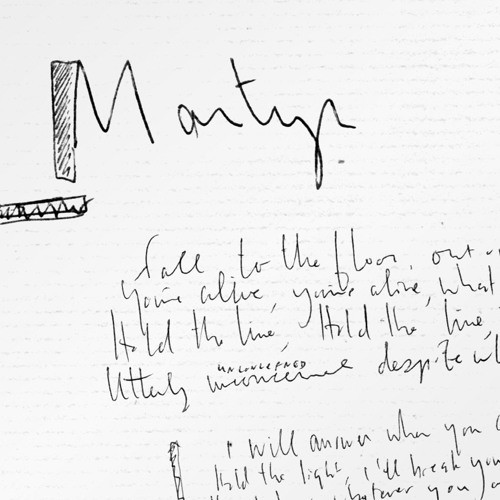 Martyr
fall to the floor, out
you're alive, you're alive, what
Hold the line, Hold the line,
UNCONCERNED
Utterly unconcerned despite
I will answer when you
Hold the light, i'll break you
whatever you